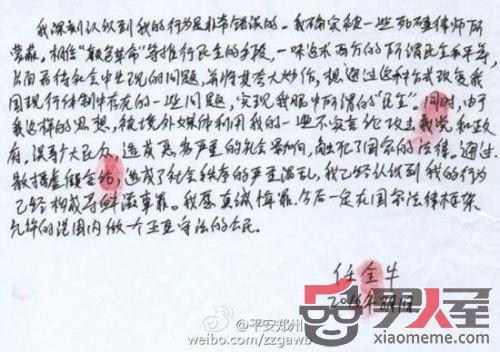 我深刻认识到我的行为是非常错误的。我确实被一些死磕律师所
蒙蔽,相信"颜色革命"等推行民主的手段,一味追求西方的所谓民主和平等,
片面看待社会中出现的问题,并将其夸大炒作,想通过这种方式改变我
国现行体制中存在的一些问题,实现我眼中所谓的"民主"。同时,由于
我这样的思想,被境外媒体利用我的一些不实言论攻击我党和政
府,误导大民众,造成恶劣严重的社会影响,触犯了国家的法律。通过
散播虚假言论,造成了社会秩序的严重混乱,我已经认识到我的行为
已经构成寻衅滋事罪。我愿真诚悔罪,今后一定在国家法律框架
允许的范围内做一个正直守法的公民。
任全牛
2016年
@平安郑州
weibo.com/zzgawb
男人屋
xiaomeme.com